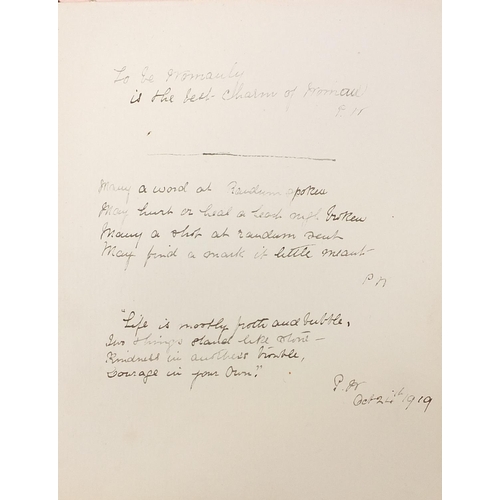 To be Womanly
is the best Charm of Woman
P. W.
Many a word at Random spoken
May hurt or heal a heart nigh broken
Many a shot at random sent
May find a mark it little meant
P W
"Life is mostly froth and bubble,
Two things stand like stone—
Kindness in anothers trouble,
Courage in your Own."
P. W
Oct 24th 1919